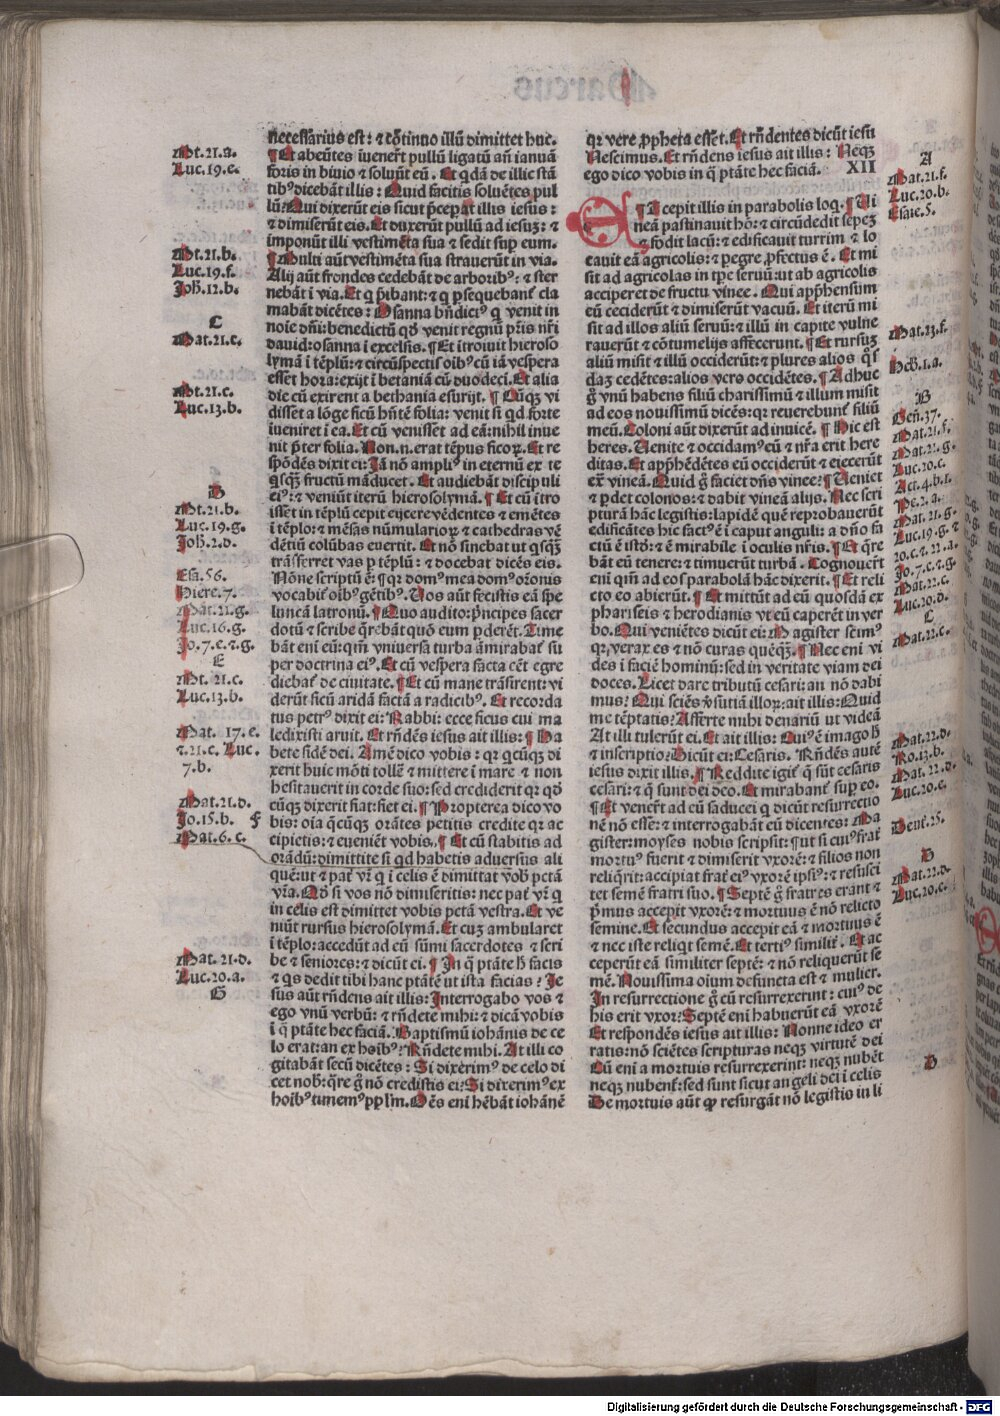 necessarius est: ⁊ cõtinuo illũ dimittet huc.
¶ Et abeũtes iuenert pullũ ligatũ añ ianuã
foris in biuio ⁊ soluũt eũ. Et qdã de illic stã
tibꝰ dicebãt illis: Quid facitis soluẽtes pul
lũ? Qui dixerũt eis sicut pcepat illis iesus:
⁊ dimiserũt eis. Et duxerũt pullũ ad iesuȝ: ⁊
imponũt illi vestimẽta sua ⁊ sedit sup eum.
¶ Multi aũt vestimẽta sua strauerũt in via.
Alij aũt frondes cedebãt de arboribꝰ: ⁊ ster
nebãt i via. Et q pibant: ⁊ q psequebant cla
mabãt dicẽtes: Osanna bñdictꝰ q venit in
noie dñi: benedictũ qd venit regnũ pris nri
dauid: osanna i excelsis. ¶ Et itroiuit hieroso
lymã i tẽplũ: ⁊ circũspectis oibꝰ cũ iã vespera
esset hora: exijt i betaniã cũ duodeci. Et alia
die cũ exirent a bethania esurijt. ¶ Cũqȝ vi
disset a lõge ficũ hñtẽ folia: venit si qd forte
iueniret i ea. Et cũ venisset ad eã: nihil inue
nit pter folia. Non.n. erat tẽpus ficoꝝ. Et re
spõdẽs dixit ei: Iã nõ ampliꝰ in eternũ ex te
qsqȝ fructũ mãducet. Et audiebãt discipuli
eiꝰ: ⁊ veniũt iterũ hierosolymã. ¶ Et cũ itro
isset in tẽplũ cepit eijcere vẽdentes ⁊ emẽtes
i tẽplo: ⁊ mẽsas nũmularioꝝ ⁊ cathedras vẽ
dẽtiũ colũbas euertit. Et nõ sinebat ut qsqȝ
trãsferret vas p tẽplũ: ⁊ docebat dicẽs eis.
Nõne scriptũ ẽ: ¶ qr domꝰ mea domꝰ oronis
vocabit oibꝰ gẽtibꝰ. Uos aũt fecistis eã spe
luncã latronũ. ¶ Quo audito: pncipes sacer
dotũ ⁊ scribe qrebãt quõ eum pderẽt. Time
bãt eni eũ: qm vniuersa turba amirabat su
per doctrina eiꝰ. Et cũ vespera facta cẽt egre
diebat de ciuitate. ¶ Et cũ mane trãsirent: vi
derũt ficũ aridã factã a radicibꝰ. Et recorda
tus petrꝰ dixit ei: Rabbi: ecce ficus cui ma
ledixisti aruit. Et rñdẽs iesus ait illis: ¶ Ha
bete fidẽ dei. Amẽ dico vobis: qr qcũqȝ di
xerit huic mõti tolle ⁊ mittere i mare ⁊ non
hesitauerit in corde suo: sed crediderit qr qd
cũqȝ dixerit fiat: fiet ei. ¶ Propterea dico vo
bis: oia qcũqȝ orãtes petitis credite qr ac
cipietis: ⁊ eueniẽt vobis. ¶ Et cũ stabitis ad
orãdũ: dimittite si qd habetis aduersus ali
quẽ: ut ⁊ pat vr q i celis ẽ dimittat vob petã
vra. Qd si vos nõ dimiseritis: nec pat vr q
in celis est dimittet vobis petã vestra. Et ve
niũt rursus hierosolymã. Et cuȝ ambularet
i tẽplo: accedũt ad eũ sũmi sacerdotes ⁊ scri
be ⁊ seniores: ⁊ dicũt ei. ¶ In q ptãte h facis
⁊ qs dedit tibi hanc ptãtẽ ut ista facias? Ie
sus aũt rñdens ait illis: Interrogabo vos ⁊
ego vnũ verbũ: ⁊ rñdete mihi: ⁊ dicã vobis
i q ptãte hec faciã. Baptismũ iohãnis de ce
lo erat: an ex hoibꝰ? Rñdete mihi. At illi co
gitabãt secũ dicẽtes: Si dixerimꝰ de celo di
cet nob: qre g nõ credistis ei? Si dixerimꝰ ex
hoibꝰ timemꝰ pplm. Oẽs eni hẽbãt iohãnẽ
Mt.21.a.
Luc.19.e.
Mt.21.b.
Luc.19.f.
Joh.12.b.
C
Mat.21.c.
Mt.21.c.
Luc.13.b.
D
Mt.21.b.
Luc.19.g.
Joh.2.d.
Esa.56.
Hiere.7.
Mat.21.g.
Luc.16.g.
Jo.7.e.⁊.g.
E
Mt.21.c.
Luc.13.b.
Mat.17.e.
⁊.21.c. Luc.
7.b.
Mat.21.d.
Jo.15.b. F
Mat.6.c.
Mat.21.d.
Luc.20.a.
G
qr vere ppheta esset. Et rñdentes dicũt iesu
Nescimus. Et rñdens iesus ait illis: Neqȝ
ego dico vobis in q ptãte hec faciã. XII
ET cepit illis in parabolis loq. ¶ Ui
neã pastinauit hõ: ⁊ circũdedit sepeȝ
⁊ fodit lacũ: ⁊ edificauit turrim ⁊ lo
cauit eã agricolis: ⁊ pegre pfectus ẽ. Et mi
sit ad agricolas in tpe seruũ: ut ab agricolis
acciperet de fructu vinee. Qui apphensum
eũ ceciderũt ⁊ dimiserũt vacuũ. Et iterũ mi
sit ad illos aliũ seruũ: ⁊ illũ in capite vulne
rauerũt ⁊ cõtumelijs affecerunt. ¶ Et rursuȝ
aliũ misit ⁊ illũ occiderũt: ⁊ plures alios qs
daȝ cedẽtes: alios vero occidẽtes. ¶ Adhuc
g vnũ habens filiũ charissimũ ⁊ illum misit
ad eos nouissimũ dicẽs: qr reuerebunt filiũ
meũ. Coloni aũt dixerũt ad inuicẽ. ¶ Hic est
heres. Uenite ⁊ occidamꝰ eũ ⁊ nra erit here
ditas. Et apphẽdẽtes eũ occiderũt ⁊ eiecerũt
ex vineã. Quid g faciet dñs vinee? ¶ Ueniet
⁊ pdet colonos: ⁊ dabit vineã alijs. Nec scri
pturã hãc legistis: lapidẽ quẽ reprobauerũt
edificãtes hic factꝰ ẽ i caput anguli: a dño fa
ctũ ẽ istd: ⁊ ẽ mirabile i oculis nris. ¶ Et qre
bãt eũ tenere: ⁊ timuerũt turbã. Cognouert
eni qm ad eos parabolã hãc dixerit. ¶ Et reli
cto eo abierũt. ¶ Et mittũt ad eũ quosdã ex
phariseis ⁊ herodianis vt eũ caperẽt in ver
bo. Qui veniẽtes dicũt ei: Magister scimꝰ
qr verax es ⁊ nõ curas quẽqȝ. ¶ Nec eni vi
des i faciẽ hominũ: sed in veritate viam dei
doces. Licet dare tributũ cesari: an nõ dabi
mus? Qui sciẽs vsutiã illoꝝ: ait illis: Quid
me tẽptatis? Afferte mihi denariũ ut videã
At illi tulerũt ei. Et ait illis: Cuiꝰ ẽ imago h
⁊ inscriptio? Dicũt ei: Cesaris. Rñdẽs autẽ
iesus dixit illis. ¶ Reddite igit q sũt cesaris
cesari: ⁊ q sunt dei deo. Et mirabant sup eo.
¶ Et venert ad eũ saducei q dicũt resurrectio
nẽ nõ esse: ⁊ interrogabãt eũ dicentes: Ma
gister: moyses nobis scripsit: ¶ ut si cuiꝰ frat
mortuꝰ fuerit ⁊ dimiserit vxorẽ: ⁊ filios non
reliqrit: accipiat frat eiꝰ vxorẽ ipsiꝰ: ⁊ resusci
tet semẽ fratri suo. ¶ Septẽ g fratres erant ⁊
pmus accepit vxorẽ: ⁊ mortuus ẽ nõ relicto
semine. Et secundus accepit eã ⁊ mortuus ẽ
⁊ nec iste reliqt semẽ. Et tertiꝰ similit. Et ac
ceperũt eã similiter septẽ: ⁊ nõ reliquerũt se
mẽ. Nouissima oium defuncta est ⁊ mulier.
In resurrectione g cũ resurrexerint: cuiꝰ de
his erit vxor? Septẽ eni habuerũt eã vxorẽ
Et respondẽs iesus ait illis: Nonne ideo er
ratis: nõ sciẽtes scripturas neqȝ virtutẽ dei
Cũ eni a mortuis resurrexerint: neqȝ nubẽt
neqȝ nubent: sed sunt sicut angeli dei i celis
De mortuis aũt qp resurgãt nõ legistis in li
A
Mat.21.f.
Luc.20.b.
Esaie.5.
Mat.13.f.
Heb.1.a.
B
Gen.37.
Mat.21.f.
Mat.22.g.
Luc.20.c.
Act.4.b.
Pe.2.a.
Mat.21.g.
Luc.19.g.⁊
20.c.⁊.22.a.
Jo.7.c.⁊.g.
Mat.22.c.
Luc.20.d.
C
Mat.22.c.
Mat.22.d.
Ro.13.b.
Mat.22.d.
Luc.20.c.
Deut.25.
D
Mat.22.d.
Luc.20.c.
D
Digitalisierung gefördert durch die Deutsche Forschungsgemeinschaft - DFG